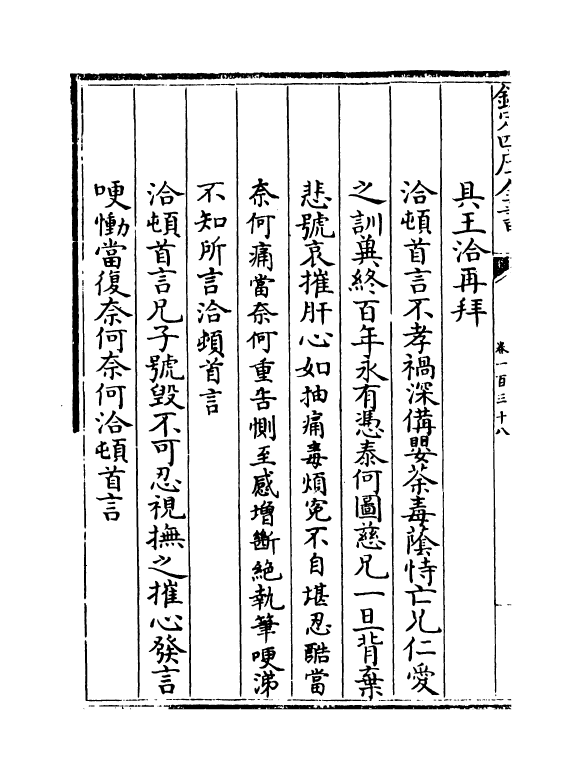 欽定四庫全書
卷一百三十八
具王洽再拜
洽頓首言不孝禍深備嬰荼毒蔭恃亡兄仁愛
之訓冀終百年永有憑泰何圖慈兄一旦背棄
悲號哀摧肝心如抽痛毒煩寃不自堪忍酷當
奈何痛當奈何重告惻至感增斷絕執筆哽涕
不知所言洽頓首言
洽頓首言兄子號毀不可忍視撫之摧心發言
哽慟當復奈何奈何洽頓首言